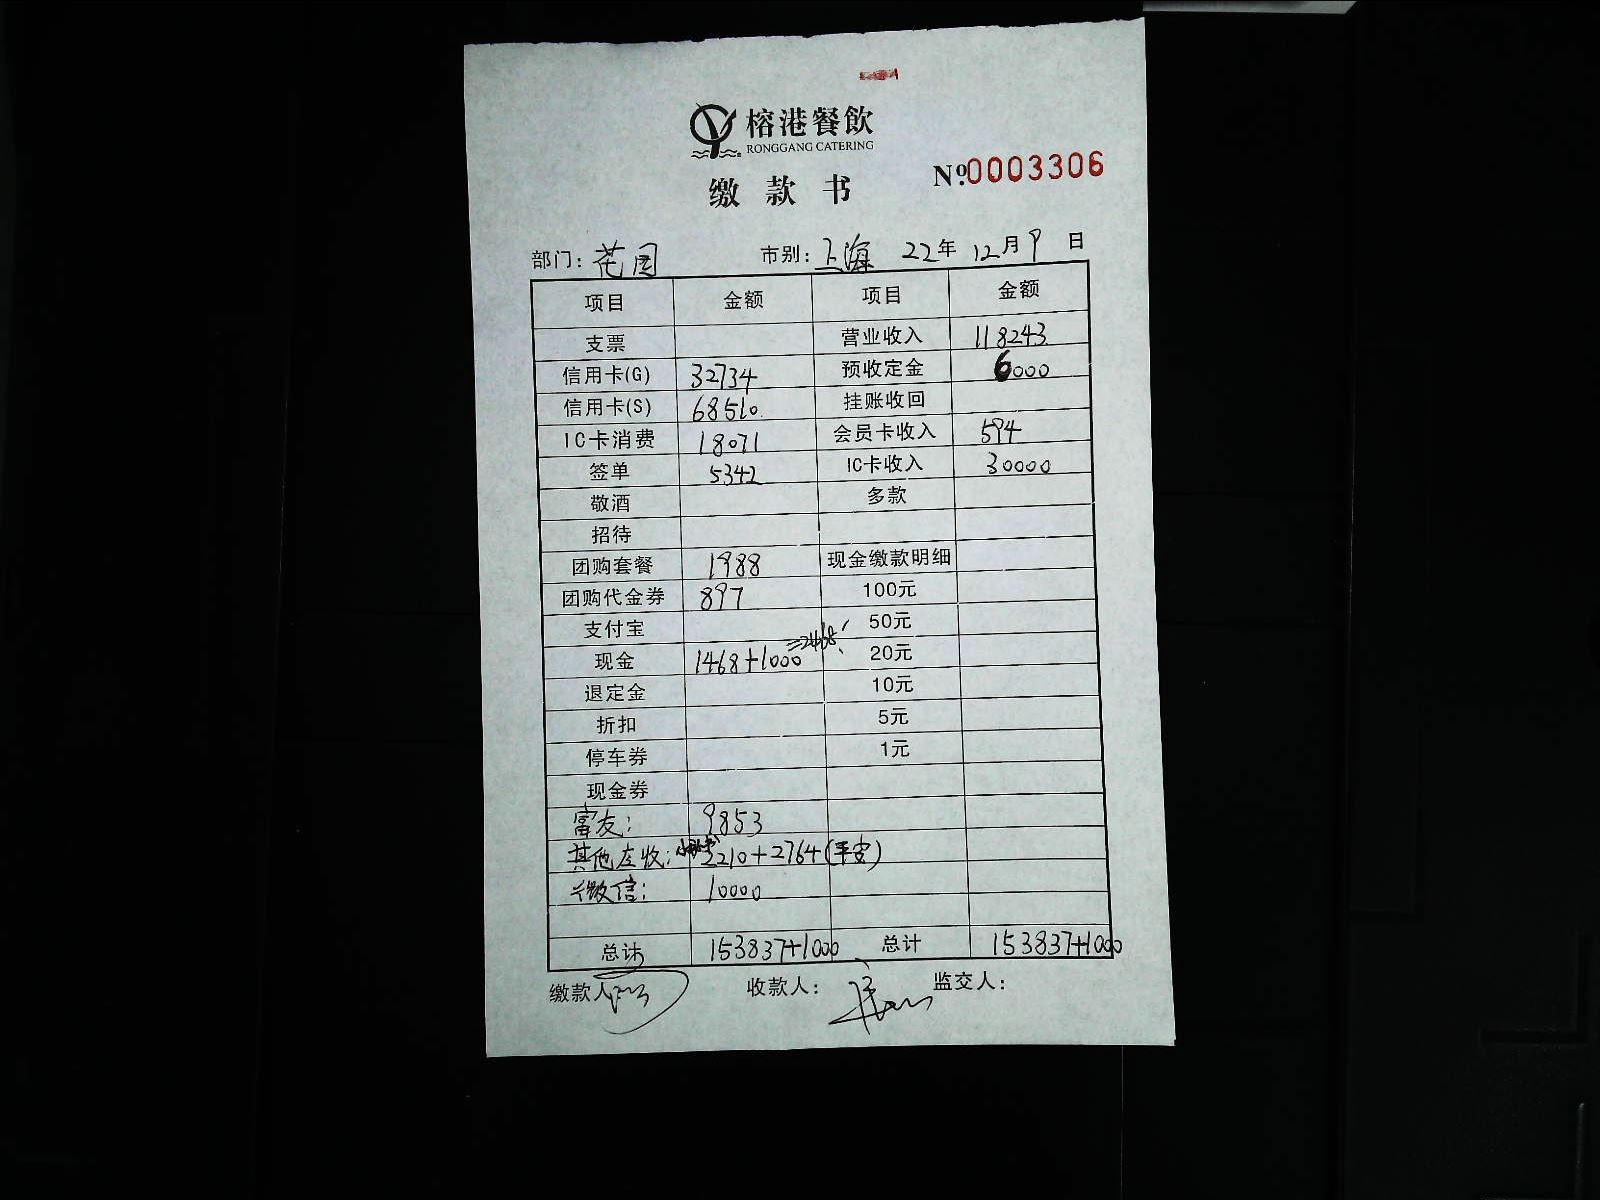 榕港餐飲
RONGGANG CATERING
缴款书
№0003306
部门：花园 市别：上海 22年12月9日
项目 金额 项目 金额
支票 营业收入 118243
信用卡(G) 32734 预收定金 6000
信用卡(S) 68510 挂账收回
IC卡消费 18071 会员卡收入 594
签单 5342 IC卡收入 30000
敬酒 多款
招待
团购套餐 1988 现金缴款明细
团购代金券 897 100元
支付宝 50元
现金 1468+1000=2468 20元
退定金 10元
折扣 5元
停车券 1元
现金券
富友： 9853
其他应收： 2210+2764(平安)
微信： 10000
总计 153837+1000 总计 153837+1000
缴款人 收款人： 监交人：